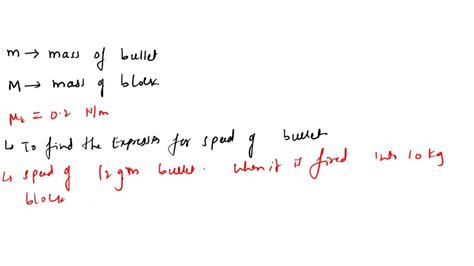 m → mass of bullet
M → mass of block
μk = 0.2 N/m
↳ To find the Expression for speed of bullet
↳ speed of 12 gm bullet. when it is fired into 10 kg
block